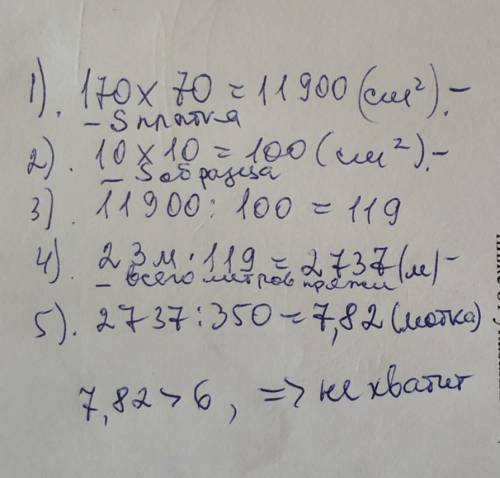 1). 170 х 70 = 11900 (см²). –
– S платка
2). 10 х 10 = 100 (см²). –
– S образца
3). 11900 : 100 = 119
4). 23м · 119 = 2737 (м) –
– всего метров пряжи
5). 2737 : 350 = 7,82 (мотка)
7,82 > 6, => не хватит